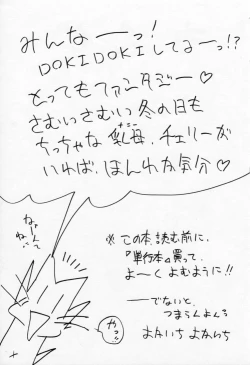 みんなーっ!
DOKIDOKIしてるーっ!?
とってもファンタジー♡
さむいさむい冬の日も
ちっちゃな乳母、チェリーが
ナニー
いれば、ほんわか気分♡
なーんてね
※この本、読む前に、
『単行本』買って、
よ〜くよむように!!
やっ
──でないと、
つまらんよん
よかいち よかいち